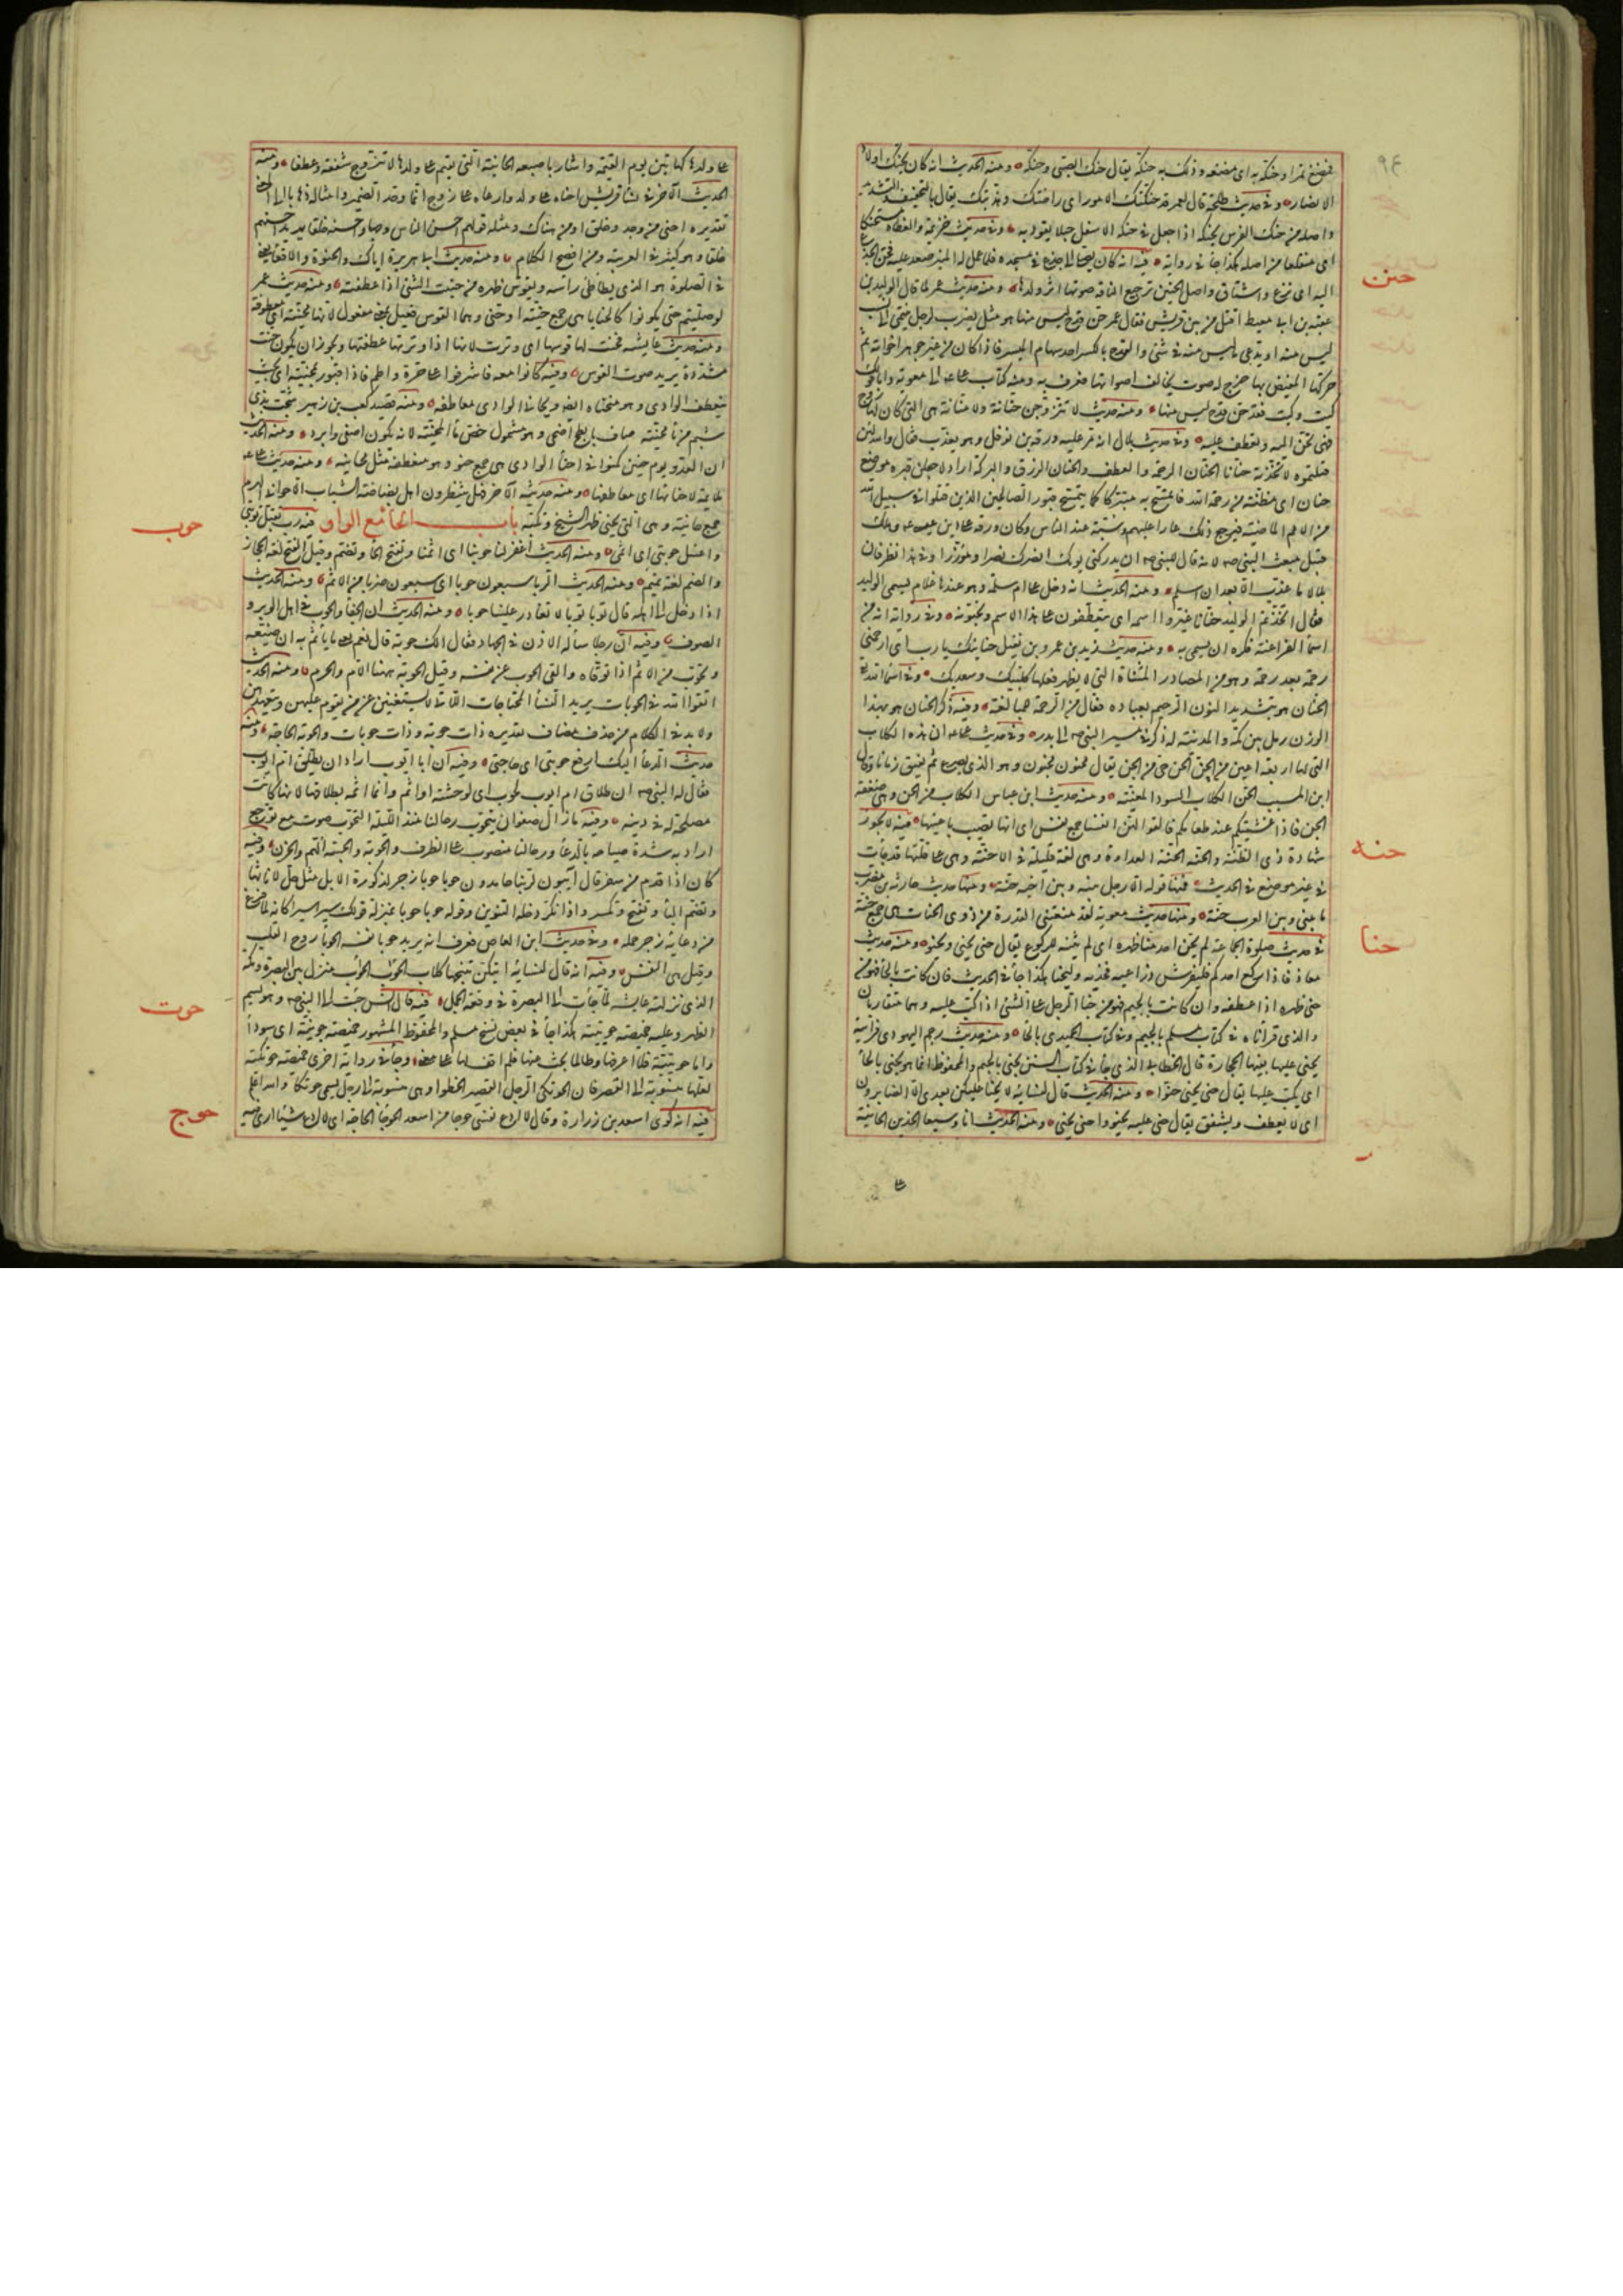 فمضغ تمرا وحنكه به اى مضغه ودلك به حنكه يقال حنك الصبى وحنكه ومنه الحديث انه كان يحنك اولاد
الانصار وفى حديث طلحة قال لعمر قد حنكتك الامور اى راضتك وهذبتك يقال بالتخفيف والتشديد
واصله من حنك الفرس يحنكه اذا جعل فى حنكه الاسفل حبلا يقوده به وفى حديث خزيمة والعضاه مستحنكا
اى منقلعا من اصله هكذا جاء فى رواية فيه انه كان يصلى الى جذع فى مسجده فلما عمل له المنبر صعد عليه فحن الجذع
حنن
اليه اى نزع واشتاق واصل الحنين ترجيع الناقة صوتها اثر ولدها ومنه حديث عمر لما قال الوليد بن
عقبة بن ابى معيط اقتل من بين قريش فقال عمر حن قدح ليس منها هو مثل يضرب لرجل ينتمى الى نسب
ليس منه او يدعى ما ليس منه فى شئ والقدح بالكسر احد سهام الميسر فاذا كان من غير جوهر اخواته ثم
حركها المفيض بها خرج له صوت يخالف اصواتها فعرف به ومنه كتاب على الى معوية واما قولك
كيت وكيت فقد حن قدح ليس منها ومنه حديث لا تتزوجن حنانة ولا منانة هى التى كان لها زوج
فهى تحن اليه وتعطف عليه وفى حديث بلال انه مر عليه ورقة بن نوفل وهو يعذب فقال والله لئن
قتلتموه لاتخذنه حنانا الحنان الرحمة والعطف والحنان الرزق والبركة اراد لاجعلن قبره موضع
حنان اى مظنة من رحمة الله فاتمسح به متبركا كما يتمسح بقبور الصالحين الذين قتلوا فى سبيل الله
من الامم الماضية فيرجع ذلك عارا عليهم وسبة عند الناس وكان ورقة على دين عيسى وهلك
قبيل مبعث النبى صم لانه قال للنبى صم ان يدركنى يومك لانصرنك نصرا مؤزرا وفى هذا نظر فان
بلالا ما عذب الا بعد ان اسلم ومنه الحديث انه دخل على ام سلمة وعندها غلام يسمى الوليد
فقال اتخذتم الوليد حنانا غيروا اسمه اى تتعطفون على هذا الاسم وتحبونه وفى رواية انه من
اسماء الفراعنة فكره ان يسمى به ومنه حديث زيد بن عمرو بن نفيل حنانيك يا رب اى ارحمنى
رحمة بعد رحمة وهو من المصادر المثناة التى لا يظهر فعلها كلبيك وسعديك وفى اسماء الله تعالى
الحنان هو بتشديد النون الرحيم بعباده فعال من الرحمة للمبالغة وفيه ذكر الحنان هو بهذا
الوزن رمل بين مكة والمدينة له ذكر فى مسير النبى صم الى بدر وفى حديث على ان هذه الكلاب
التى لها اربعة اعين من الحن الحن حى من الجن يقال مجنون محنون وهو الذى يصرع ثم يفيق زمانا وقال
ابن المسيب الحن الكلاب السود المعينة ومنه حديث ابن عباس الكلاب من الحن وهى ضعفة
الجن فاذا غشيتكم عند طعامكم فالقوا لهن فان لهن انفسا جمع نفس اى انها تصيب باعينها فيه لا تجوز
حنه
شهادة ذى الظنة والحنة الحنة العداوة وهى لغة قليلة فى الاحنة وهى على قلتها قد جاءت
فى غير موضع فى الحديث فمنها قوله الا رجل بينه وبين اخيه حنة ومنها حديث حارثة بن مضرب
ما بينى وبين العرب حنة ومنها حديث معوية لقد منعتنى القدرة من ذوى الحنات هى جمع حنة
حنا
فى حديث صلوة الجماعة لم يحن احد منا ظهره اى لم يثنه للركوع يقال حنى يحنى ويحنو ومنه حديث
معاذ فاذا ركع احدكم فليفرش ذراعيه فخذيه وليحنأ هكذا جاء فى الحديث فان كانت بالحاء فهو من
حنى ظهره اذا عطفه وان كانت بالجيم فهو من جنا الرجل على الشئ اذا اكب عليه وهما متقاربان
والذى قرأناه فى كتاب مسلم بالجيم وفى كتاب الحميدى بالحاء ومنه حديث رجم اليهودى فرأيته
يحنى عليها يقيها الحجارة قال الخطابى الذى جاء فى كتاب السنن يجنى بالجيم والمحفوظ انما هو يحنى بالحاء
اى يكب عليها يقال حنى يحنى حنوا ومنه الحديث قال لنسائه لا يحنى عليكن بعدى الا الصابرون
اى لا يعطف ويشفق يقال حنى عليه يحنو واحنى يحنى ومنه الحديث انا وسفعاء الخدين الحانية
على
على ولدها كهاتين يوم القيمة واشار باصبعه الحانية التى تقيم على ولدها لا تتزوج شفقة وعطفا ومنه
الحديث الآخر فى نساء قريش احناه على ولد وارعاه على زوج انما وحد الضمير وامثاله ذهابا الى المعنى
تقديره احنى من وجد وخلق او من هناك ومثله قولهم احسن الناس وجها واحسنه خلقا يريد احسنهم
خلقا وهو كثير فى العربية ومن افصح الكلام ومنه حديث ابى هريرة اياك والحنوة والاقعاء يعنى
فى الصلوة هو الذى يطأطئ راسه ويقوس ظهره من حنيت الشئ اذا عطفته ومنه حديث عمر
لو صليتم حتى تكونوا كالحنايا هى جمع حنية او حنى وهما القوس فعيل بمعنى مفعول لانها محنية اى معطوفة
ومنه حديث عايشة فحنت لها قوسها اى وترت لانها اذا وترتها عطفتها ويجوز ان يكون حنت
مشددة يريد صوت القوس وفيه كانوا معه فاشرفوا على حرة واقم فاذا قبور بمحنية اى بحيث
ينعطف الوادى وهو منحناه ايضا ومحانى الوادى معاطفه ومنه قصيد كعب بن زهير شجت بذى
شبم من ماء محنية صاف بابطح اضحى وهو مشمول خص ماء المحنية لانه يكون اصفى وابرد ومنه الحديث
ان العدو يوم حنين كمنوا فى احناء الوادى هى جمع حنو وهو منعطفه مثل محانيه ومنه حديث على
ملائمة لاحنائها اى معاطفها ومنه حديثه الآخر فهل ينتظرون اهل بضاضة الشباب الا حوانى الهرم
جمع حانية وهى التى تحنى ظهر الشيخ وتكبه باب الحاء مع الواو فيه رب تقبل توبتى
حوب
واغسل حوبتى اى اثمى ومنه الحديث اغفر لنا حوبنا اى اثمنا وتفتح الحاء وتضم وقيل الفتح لغة الحجاز
والضم لغة تميم ومنه الحديث الربا سبعون حوبا اى سبعون ضربا من الاثم ومنه الحديث
اذا دخل الى اهله قال توبا توبا لا تغادر علينا حوبا ومنه الحديث ان الجفاء والحوب فى اهل الوبر و
الصوف وفيه ان رجلا سأله الاذن فى الجهاد فقال الك حوبة قال نعم يعنى ما يأثم به ان ضيعه
وتحوب من الاثم اذا توقاه والقى الحوب عن نفسه وقيل الحوبة ههنا الام والحرم ومنه الحديث
اتقوا الله فى الحوبات يريد النساء المحتاجات اللاتى لا يستغنين عن من يقوم عليهن ويتعهدهن
ولا بد فى الكلام من حذف مضاف تقديره ذات حوبة وذات حوبات والحوبة الحاجة ومنه
حديث الدعاء اليك ارفع حوبتى اى حاجتى وفيه ان ابا ايوب اراد ان يطلق ام ايوب
فقال له النبى صم ان طلاق ام ايوب لحوب اى لوحشة او اثم وانما اثمه بطلاقها لانها كانت
مصلحة له فى دينه وفيه ما زال صفوان يتحوب رحالنا منذ الليلة التحوب صوت مع توجع
اراد به شدة صياحه بالدعاء ورحالنا منصوب على الظرف والحوبة والحيبة الهم والحزن وفيه
كان اذا قدم من سفر قال آيبون لربنا حامدون حوبا حوبا زجر لذكورة الابل مثل حل لاناثها
وتضم الباء وتفتح وتكسر واذا نكر دخله التنوين وقوله حوبا حوبا بمنزلة قولك سيرا سيرا كانه لما فرغ
من دعائه زجر جمله وفى حديث ابن العاص فعرف انه يريد حوباء نفسه الحوباء روح القلب
وقيل هى النفس وفيه انه قال لنسائه ايتكن تنبحها كلاب الحوأب الحوأب منزل بين البصرة ومكة
الذى نزلته عايشة لما جاءت الى البصرة فى وقعة الجمل فيه قال انس جئت الى النبى صم وهو يسم
حوت
الظهر وعليه خميصة حويتية هكذا جاء فى بعض نسخ مسلم والمحفوظ المشهور خميصة جونية اى سوداء
واما حويتية فلا اعرفها وطالما بحثت عنها فلم اقف لها على معنى وجاء فى رواية اخرى خميصة حوتكية
لعلها منسوبة الى القصر فان الحوتكى الرجل القصير الخطو او هى منسوبة الى رجل يسمى حوتكا والله اعلم
فيه انه كوى اسعد بن زرارة وقال لا ادع فى نفسى حوجاء من اسعد الحوجاء الحاجة اى لا ادع شيئا ارى فيه
حوج